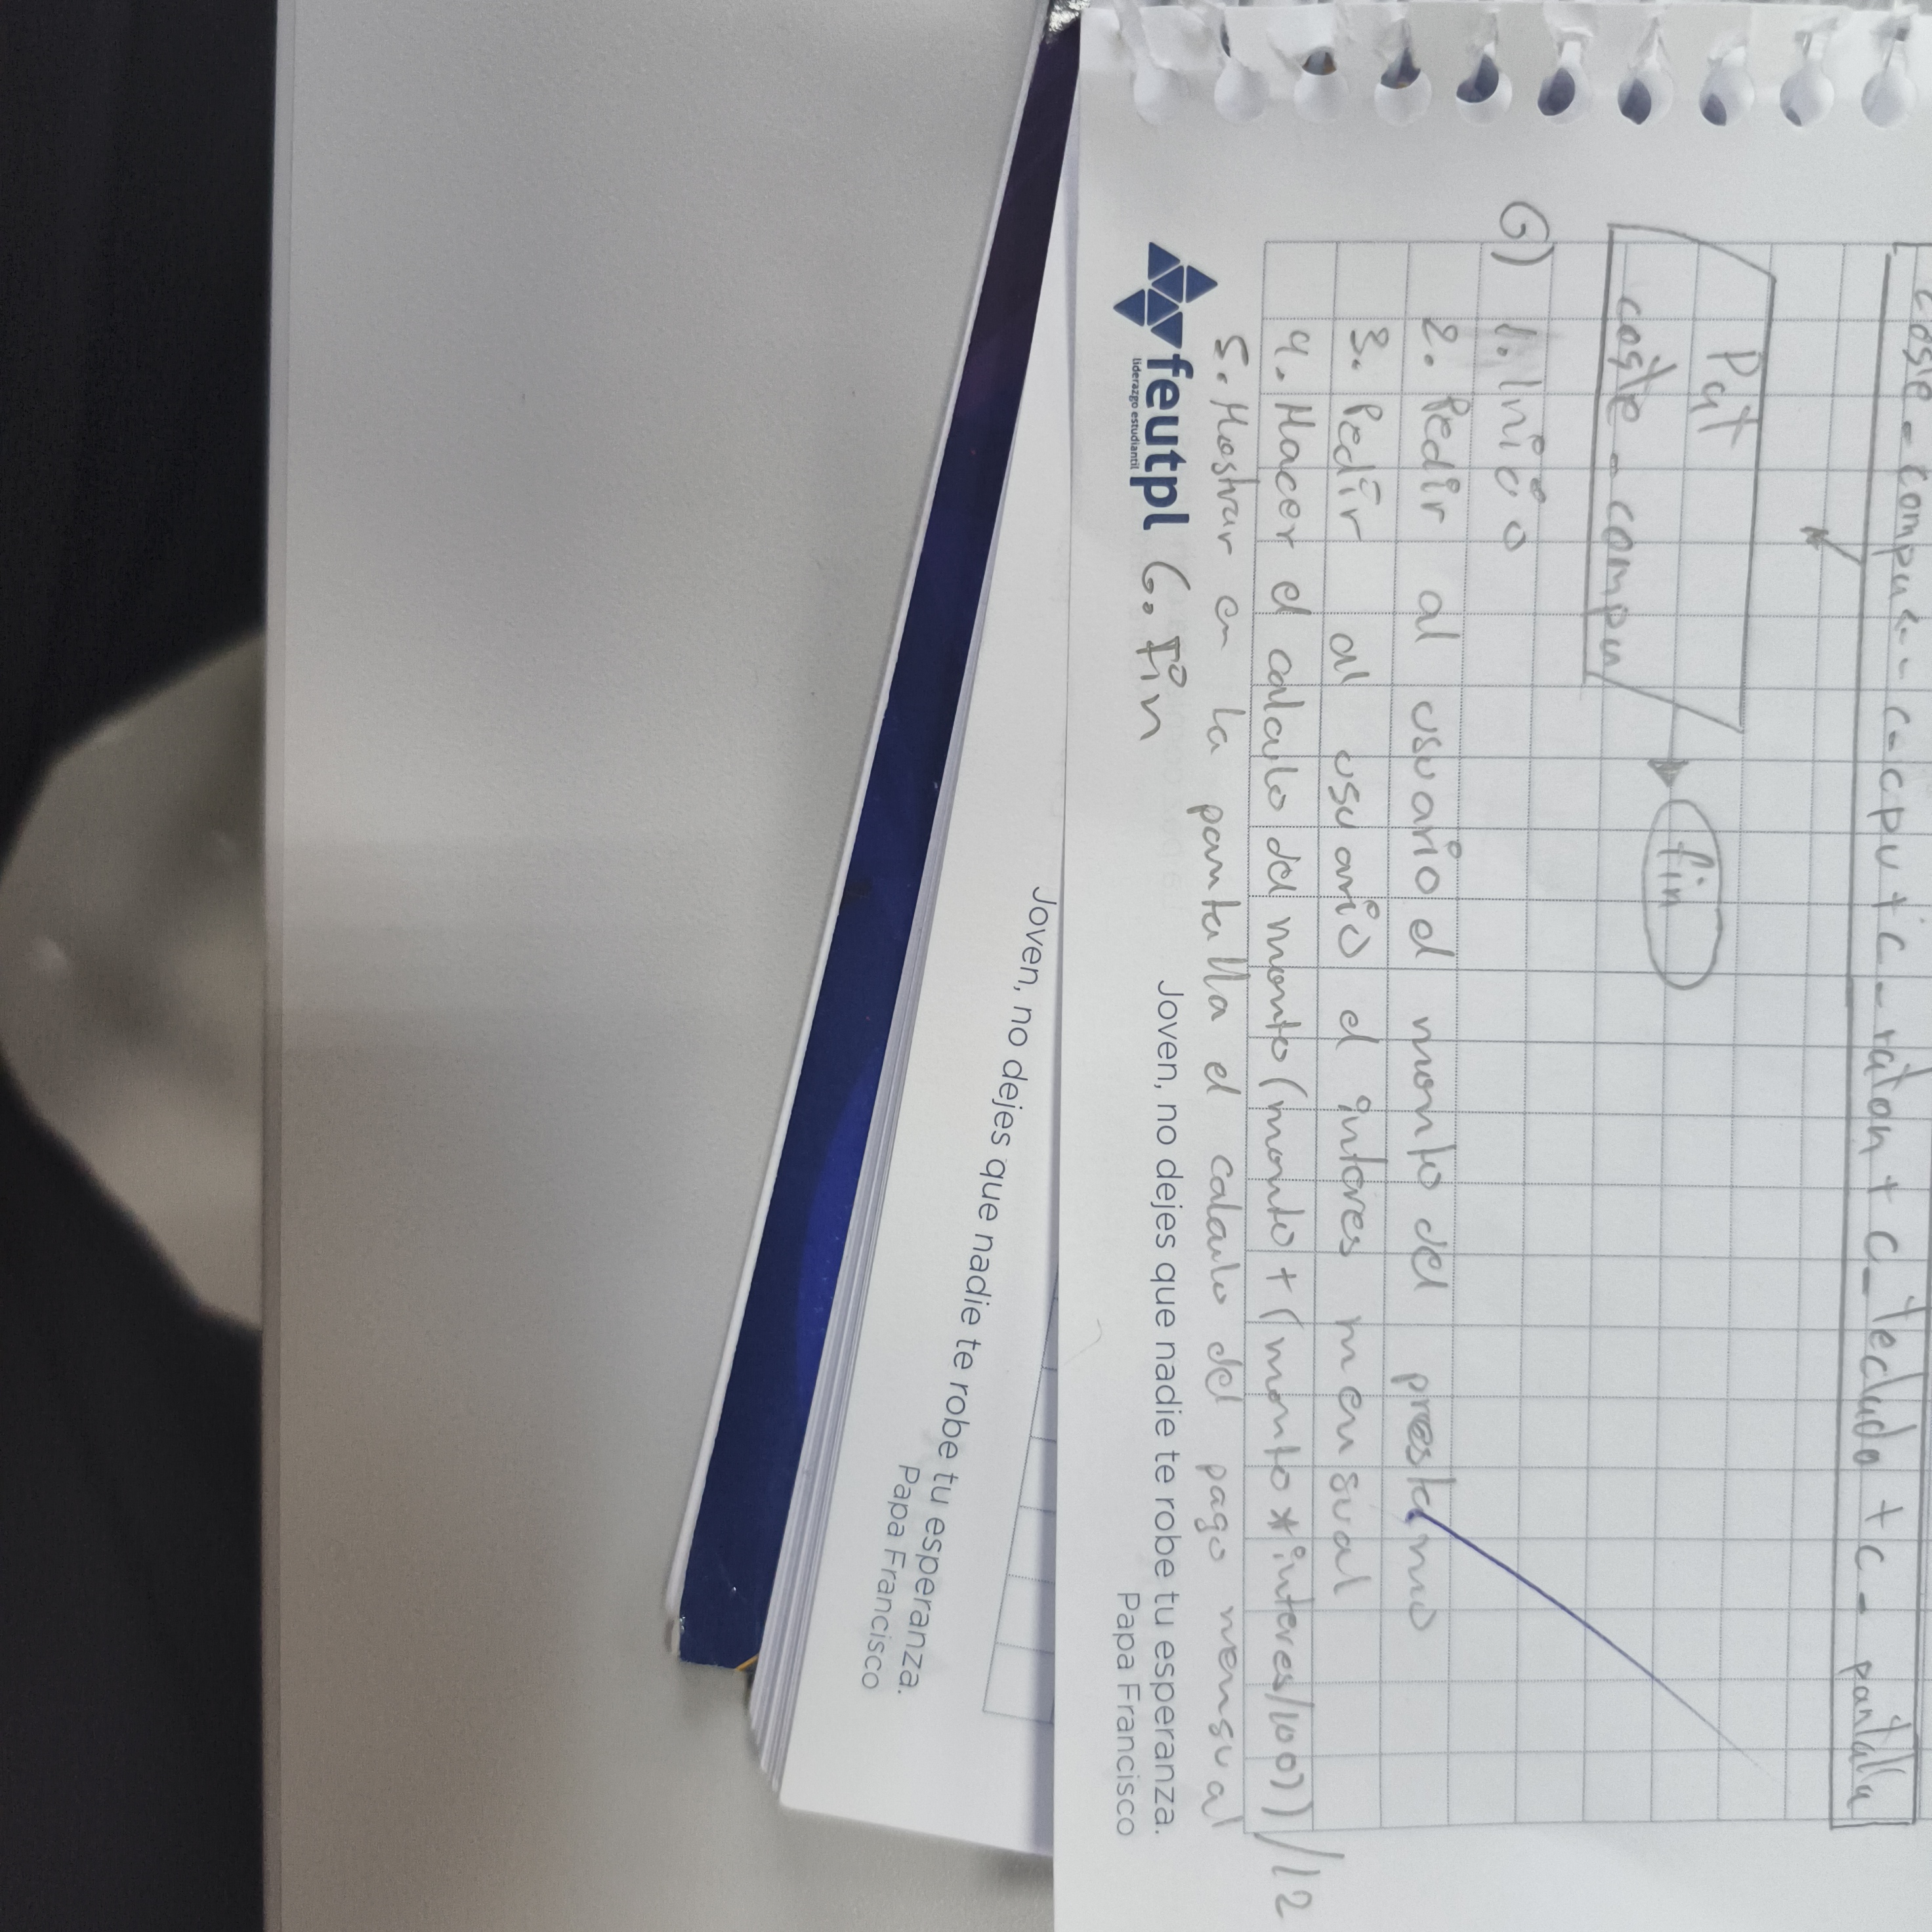 coste-compu = c-cpu + c-raton + c-teclado + c-pantalla
Pat
coste-compu
fin
G) 1. Inicio
2. Pedir al usuario el monto del prestamo
3. Pedir al usuario el interes mensual
4. Hacer el calculo del monto (monto + (monto * interes/100)) / 12
5. Mostrar en la pantalla el calculo del pago mensual
6. Fin
feutpl
liderazgo estudiantil
Joven, no dejes que nadie te robe tu esperanza.
Papa Francisco
Joven, no dejes que nadie te robe tu esperanza.
Papa Francisco